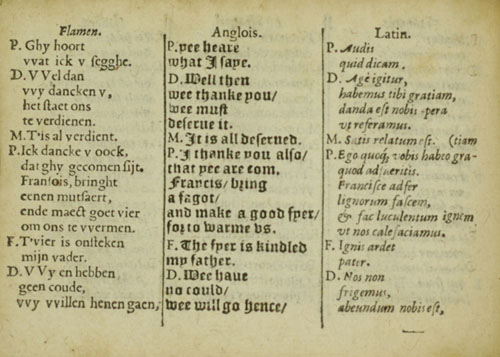 Flamen.
P. Ghy hoort
vvat ick v ſegghe.
D. VVel dan
vvy dancken v,
het ſtaet ons
te verdienen.
M. T'is al verdient.
P. Ick dancke v oock,
dat ghy gecomen ſijt.
Franſois, bringht
eenen mutſaert,
ende maect goet vier
om ons te vvermen.
F. T'vier is onſteken
mijn vader.
D. VVy en hebben
geen coude,
vvy vvillen henen gaen,
Anglois.
P. yee heare
what I ſaye.
D. Well then
wee thanke you/
wee muſt
deſerue it.
M. It is all deſerued.
P. I thanke you alſo/
that yee are com.
Francis/ bring
a fagot/
and make a good fyer/
for to warme vs.
F. The fyer is kindled
my father.
D. Wee haue
no could/
wee will go hence/
Latin.
P. Audis
quid dicam.
D. Agè igitur,
habemus tibi gratiam,
danda eſt nobis opera
vt referamus.
M. Satis relatum eſt. (tiam
P. Ego quoq, vobis habeo gra-
quod adueritis.
Franciſce adfer
lignorum faſcem,
& fac luculentum ignem
vt nos calefaciamus.
F. Ignis ardet
pater.
D. Nos non
frigemus,
abeundum nobis eſt,